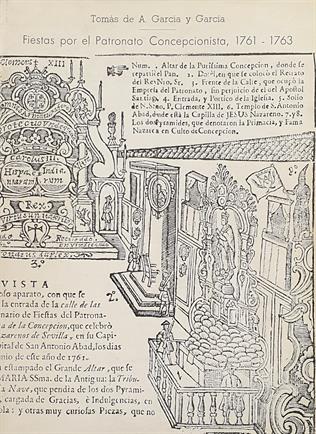 Tomás de A. García y García
Fiestas por el Patronato Concepcionista, 1761 - 1763
Clemens XIII
Num. 1. Altar de la Purissima Concepcion, donde se
repartiò el Pan. 2. Dosèl, en que se colocò el Retrato
del Rey Nro. Sr. 3. Frente de la Calle, que ocupò la
Empresa del Patronato, sin perjuicio de el del Apostol
Santiago. 4. Entrada, y Portico de la Iglesia. 5. Solio
de N. Smo. P. Clemente XIII. 6. Templo de S. Antonio
Abad, donde està la Capilla de JESUS Nazareno. 7, 8.
Los dos Pyramides, que denotaron la Primacia, y Fama
Nazarea en Culto de Concepcion.
Rex
3.º
2.º
VISTA
aparato, con que se
la entrada de la calle de las
nario de Fiestas del Patrona-
a de la Concepcion, que celebrò
zarenos de Sevilla, en su Capi-
pital de San Antonio Abad, los dias
nio de este año de 1761.
estampado el Grande Altar, que se
MARIA SSma. de la Antigua: la Tribu-
Nave, que pendia de los dos Pyrami-
cargada de Gracias, è Indulgencias, en
ola: y otras muy curiosas Piezas, que no